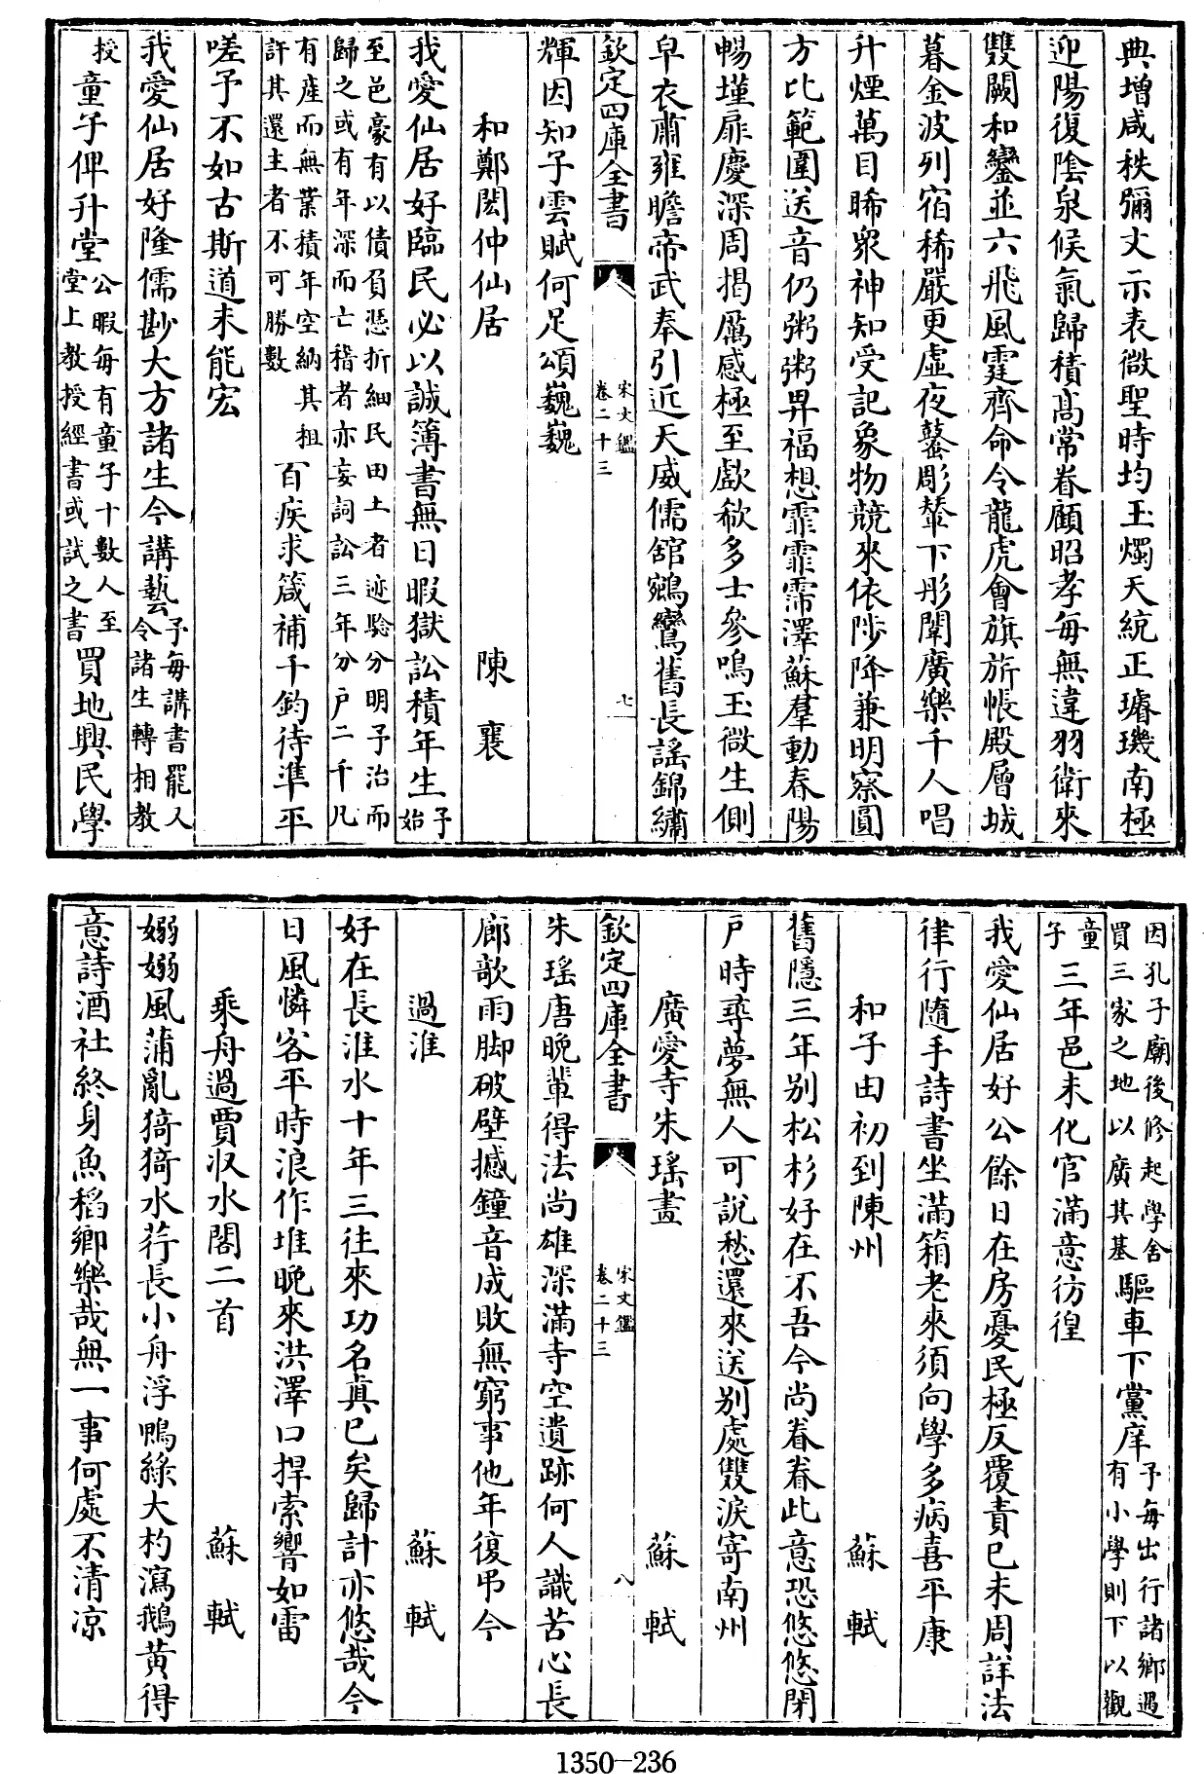 典增咸秩彌文示表微聖時均玉燭天統正璿璣南極
迎陽復陰泉候氣歸積高常眷顧昭孝每無違羽衛來
雙闕和鑾並六飛風霆齊命令龍虎會旗旂帳殿層城
暮金波列宿稀嚴更虛夜鼛彫輦下彤闈廣樂千人唱
升煙萬目睎衆神知受記象物競來依陟降兼明察圓
方比範圍送音仍粥粥畀福想霏霏霈澤蘇羣動春陽
暢墐扉慶深周揭厲感極至歔欷多士參鳴玉微生側
皁衣肅雍瞻帝武奉引近天威儒館鵷鸞舊長謠錦繡
欽定四庫全書
宋文鑑
卷二十三
七
輝因知子雲賦何足頌巍巍
和鄭閎仲仙居
陳襄
我愛仙居好臨民必以誠簿書無日暇獄訟積年生予始
至邑豪有以債負慿折細民田土者迹驗分明予治而
歸之或有年深而亡稽者亦妄詞訟三年分戶二千凡
有產而無業積年空納其租
許其還主者不可勝數
百疾求箴補千鈞待準平
嗟予不如古斯道未能宏
我愛仙居好隆儒尠大方諸生今講藝予每講書罷又
令諸生轉相教
授童子俾升堂公暇每有童子十數人至
堂上教授經書或試之書
買地興民學
因孔子廟後修起學舍
買三家之地以廣其基
驅車下黨庠予每出行諸鄉遇
有小學則下以觀
童子
三年邑未化官滿意彷徨
我愛仙居好公餘日在房憂民極反覆責已未周詳法
律行隨手詩書坐滿箱老來須向學多病喜平康
和子由初到陳州
蘇軾
舊隱三年别松杉好在不吾今尚眷眷此意恐悠悠閉
戶時尋夢無人可說愁還來送别處雙淚寄南州
廣愛寺朱瑤畫
蘇軾
欽定四庫全書
宋文鑑
卷二十三
八
朱瑤唐晚輩得法尚雄深滿寺空遺跡何人識苦心長
廊歌雨脚破壁撼鐘音成敗無窮事他年復弔今
過淮
蘇軾
好在長淮水十年三往來功名真已矣歸計亦悠哉今
日風憐客平時浪作堆晚來洪澤口捍索響如雷
乘舟過賈收水閣二首
蘇軾
嫋嫋風蒲亂猗猗水荇長小舟浮鴨綠大杓瀉鵝黃得
意詩酒社終身魚稻鄉樂哉無一事何處不清凉
1350-236